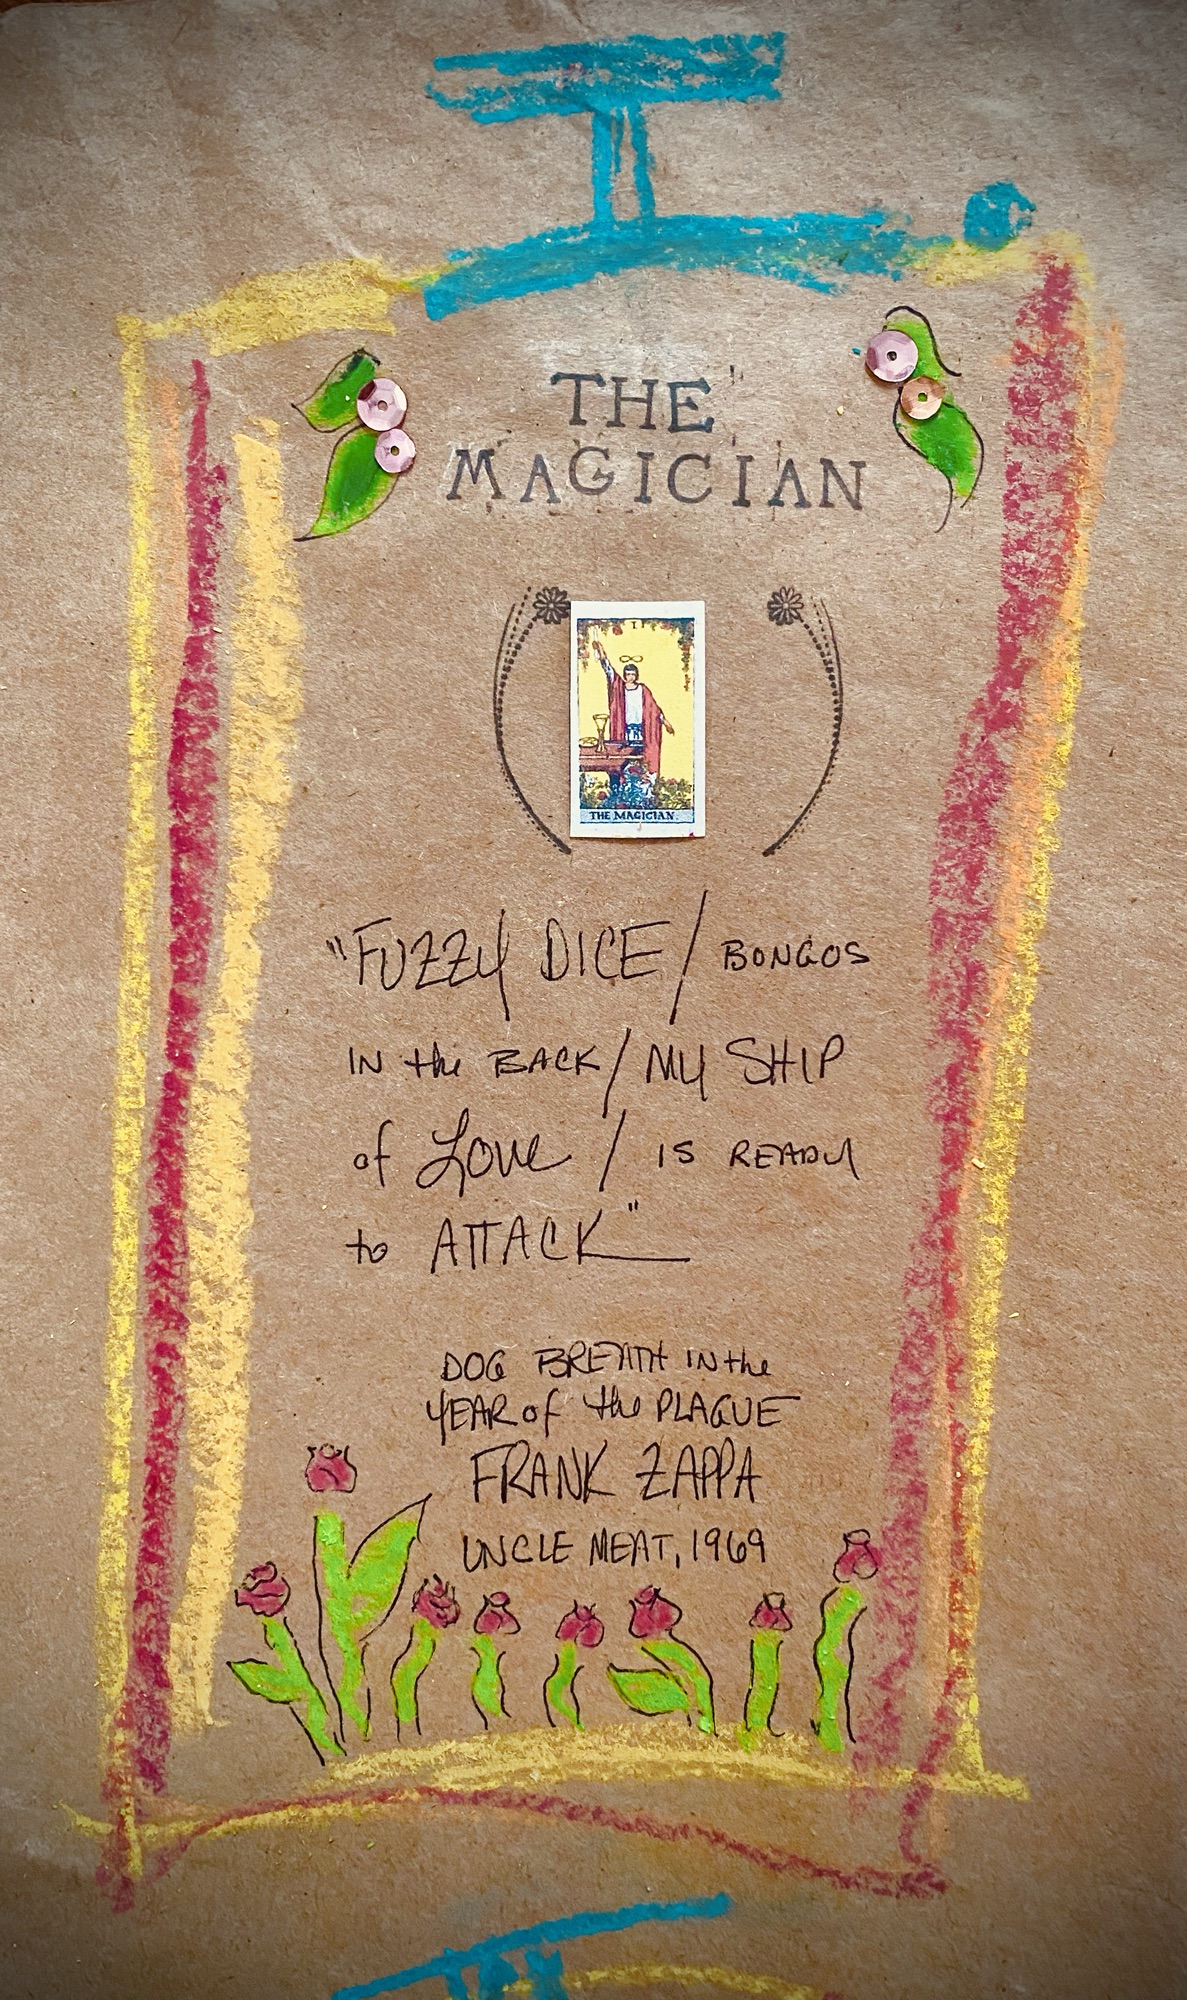 I.
THE
MAGICIAN
I
THE MAGICIAN.
"FUZZY DICE / BONGOS
IN the BACK / MY SHIP
of Love / IS READY
to ATTACK"
DOG BREATH IN the
YEAR of the PLAGUE
FRANK ZAPPA
UNCLE MEAT, 1969